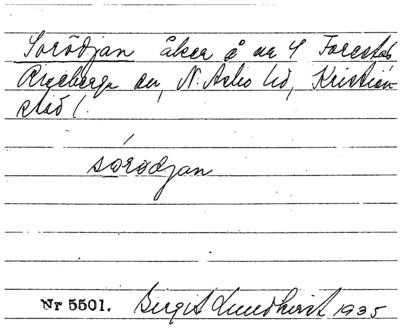 Sorödjan åker å nr 4 Forestad
Ryeberga sn, N. Åsbo hd, Kristian-
stad l.
sórödjan
Nr 5501. Birgit Lundkvist 1935